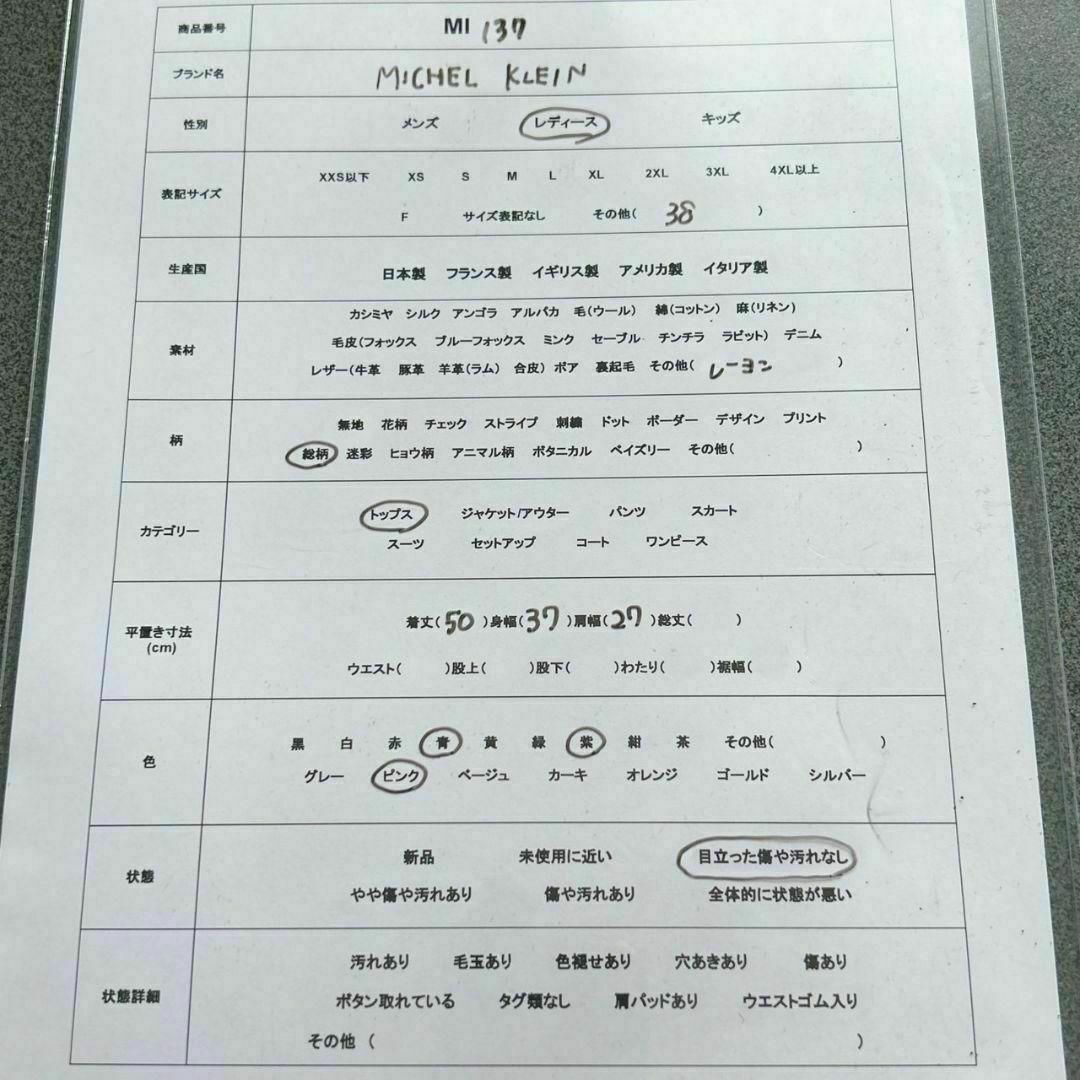 商品番号 MI 137
ブランド名 MICHEL KLEIN
性別 メンズ レディース キッズ
表記サイズ XXS以下 XS S M L XL 2XL 3XL 4XL以上
F サイズ表記なし その他( 38 )
生産国 日本製 フランス製 イギリス製 アメリカ製 イタリア製
素材 カシミヤ シルク アンゴラ アルパカ 毛(ウール) 綿(コットン) 麻(リネン)
毛皮(フォックス ブルーフォックス ミンク セーブル チンチラ ラビット) デニム
レザー(牛革 豚革 羊革(ラム) 合皮) ボア 裏起毛 その他( レーヨン )
柄 無地 花柄 チェック ストライプ 刺繍 ドット ボーダー デザイン プリント
総柄 迷彩 ヒョウ柄 アニマル柄 ボタニカル ペイズリー その他( )
カテゴリー トップス ジャケット/アウター パンツ スカート
スーツ セットアップ コート ワンピース
平置き寸法 着丈( 50 )身幅( 37 )肩幅( 27 )総丈( )
(cm) ウエスト( )股上( )股下( )わたり( )裾幅( )
色 黒 白 赤 青 黄 緑 紫 紺 茶 その他( )
グレー ピンク ベージュ カーキ オレンジ ゴールド シルバー
状態 新品 未使用に近い 目立った傷や汚れなし
やや傷や汚れあり 傷や汚れあり 全体的に状態が悪い
状態詳細 汚れあり 毛玉あり 色褪せあり 穴あきあり 傷あり
ボタン取れている タグ類なし 肩パッドあり ウエストゴム入り
その他 ( )